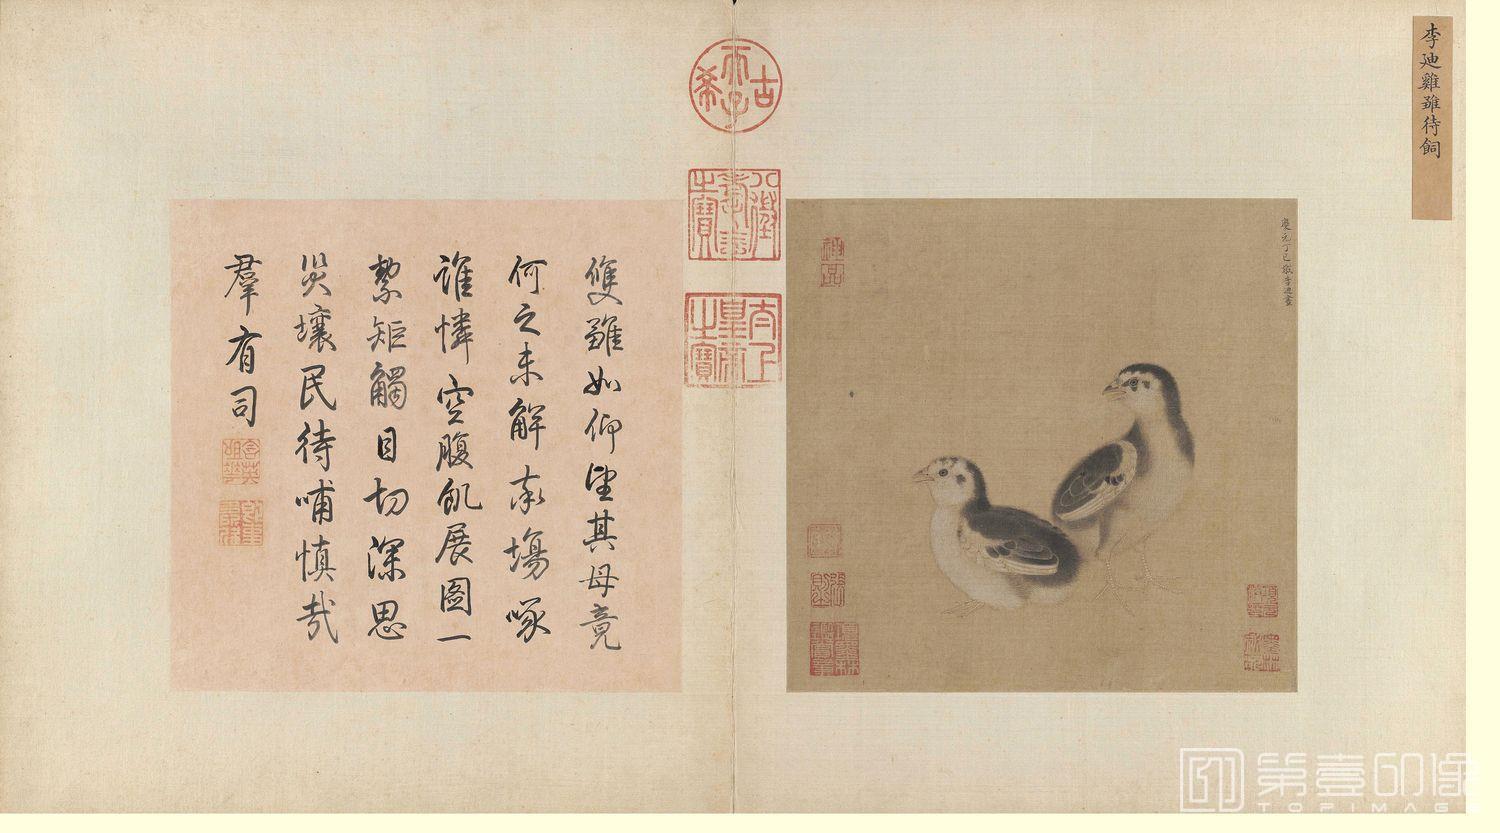 李迪雞雛待飼
慶元丁巳歲李迪畫
古希天子
八徵耄念之寶
太上皇帝之寶
雙雛如仰望其母竟
何之未解求場啄
誰憐空腹飢展圖一
絜矩觸目切深思
災壤民待哺慎哉
羣有司
含英咀華
神品
第壹印像
TOPIMAGE